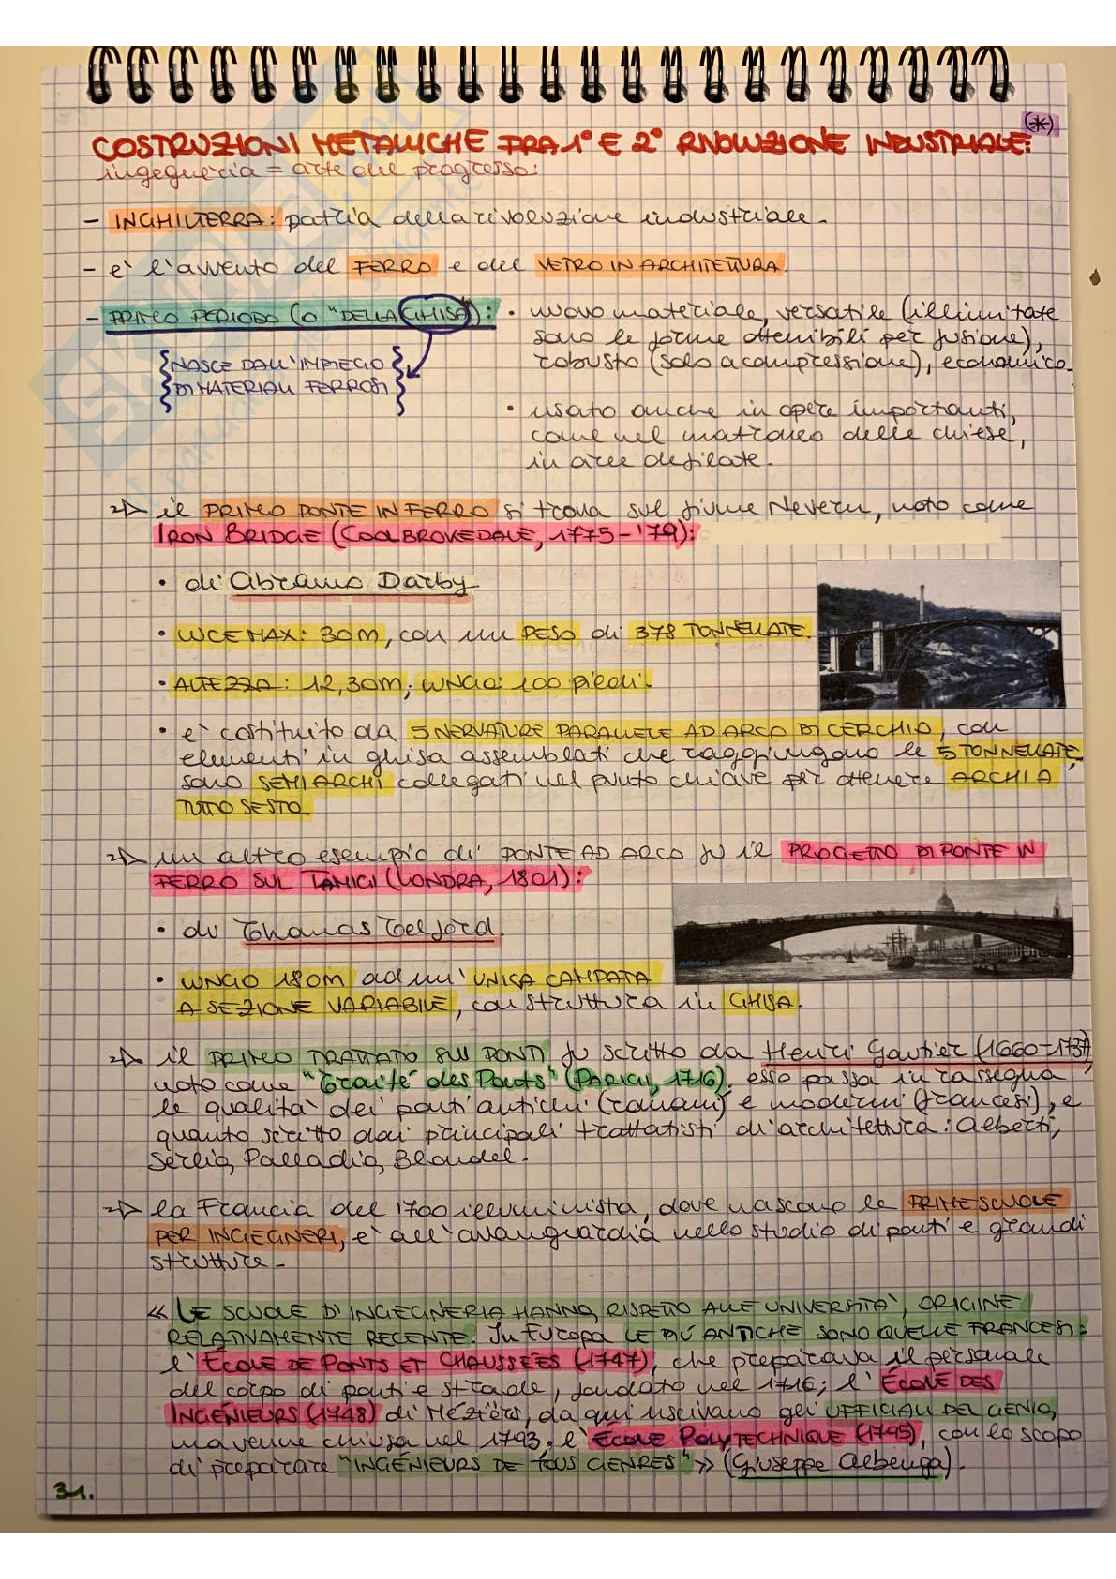 (*)
COSTRUZIONI METALLICHE FRA 1° E 2° RIVOLUZIONE INDUSTRIALE:
ingegneria = arte del progresso:
- INGHILTERRA: patria della rivoluzione industriale.
- è l'avvento del FERRO e del VETRO IN ARCHITETTURA.
- PRIMO PERIODO (O "DELLA GHISA"): • nuovo materiale, versatile (illimitate
sono le forme ottenibili per fusione),
robusto (solo a compressione), economico.
NASCE DALL'IMPIEGO
DI MATERIALI FERROSI
• usato anche in opere importanti,
come nel matroneo delle chiese,
in aree defilate.
il PRIMO PONTE IN FERRO si trova sul fiume Nevern, noto come
IRON BRIDGE (COOLBROVEDALE, 1775-'79):
• di Abramo Darby
• LUCE MAX: 30m, con un PESO di 378 TONNELLATE.
• ALTEZZA: 12,30m; LUNGO: 100 piedi.
• è costituito da 5 NERVATURE PARALLELE AD ARCO DI CERCHIO, con
elementi in ghisa assemblati che raggiungono le 5 TONNELLATE,
sono SEMIARCHI collegati nel punto chiave per ottenere ARCHI A
TUTTO SESTO.
un altro esempio di PONTE AD ARCO fu il PROGETTO DI PONTE IN
FERRO SUL TAMIGI (LONDRA, 1801):
• di Thomas Telford.
• LUNGO 180m ad un'UNICA CAMPATA
A SEZIONE VARIABILE, con struttura in GHISA.
il PRIMO TRATTATO SUI PONTI fu scritto da Henri Gautier (1660-1737)
noto come "Traité des Ponts" (PARIGI, 1716). esso passa in rassegna
le qualità dei ponti antichi (romani) e moderni (francesi), e
quanto scritto dai principali trattatisti di architettura: Alberti,
Serlio, Palladio, Blondel.
la Francia del 1700 illuminista, dove nascono le PRIME SCUOLE
PER INGEGNERI, è all'avanguardia nello studio di ponti e grandi
strutture.
« LE SCUOLE D'INGEGNERIA HANNO, RISPETTO ALLE UNIVERSITÀ, ORIGINE
RELATIVAMENTE RECENTE. In Europa LE PIÙ ANTICHE SONO QUELLE FRANCESI:
l'ÉCOLE DE PONTS ET CHAUSSÉES (1747), che preparava il personale
del corpo di ponti e strade, fondato nel 1716; l'ÉCOLE DES
INGÉNIEURS (1748) di Mézièrs, da qui uscivano gli UFFICIALI DEL GENIO,
ma venne chiusa nel 1793. l'ÉCOLE POLYTECHNIQUE (1795), con lo scopo
di preparare "INGÉNIEURS DE TOUS GENRES" » (Giuseppe Albenga).
31.